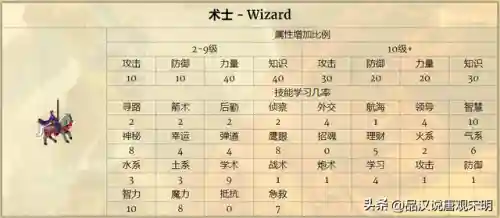 术士 - Wizard
属性增加比例
2-9级 10级+
攻击 防御 力量 知识 攻击 防御 力量 知识
10 10 40 40 30 20 20 30
技能学习几率
寻路 箭术 后勤 侦察 外交 航海 领导 智慧
2 2 2 2 4 1 4 10
神秘 幸运 弹道 鹰眼 招魂 理财 火系 气系
8 4 4 8 0 5 2 6
水系 土系 学术 战术 炮术 学习 攻击 防御
3 3 9 1 1 4 1 1
智力 魔力 抵抗 急救
10 8 0 7
头条 @品汉说唐观宋明